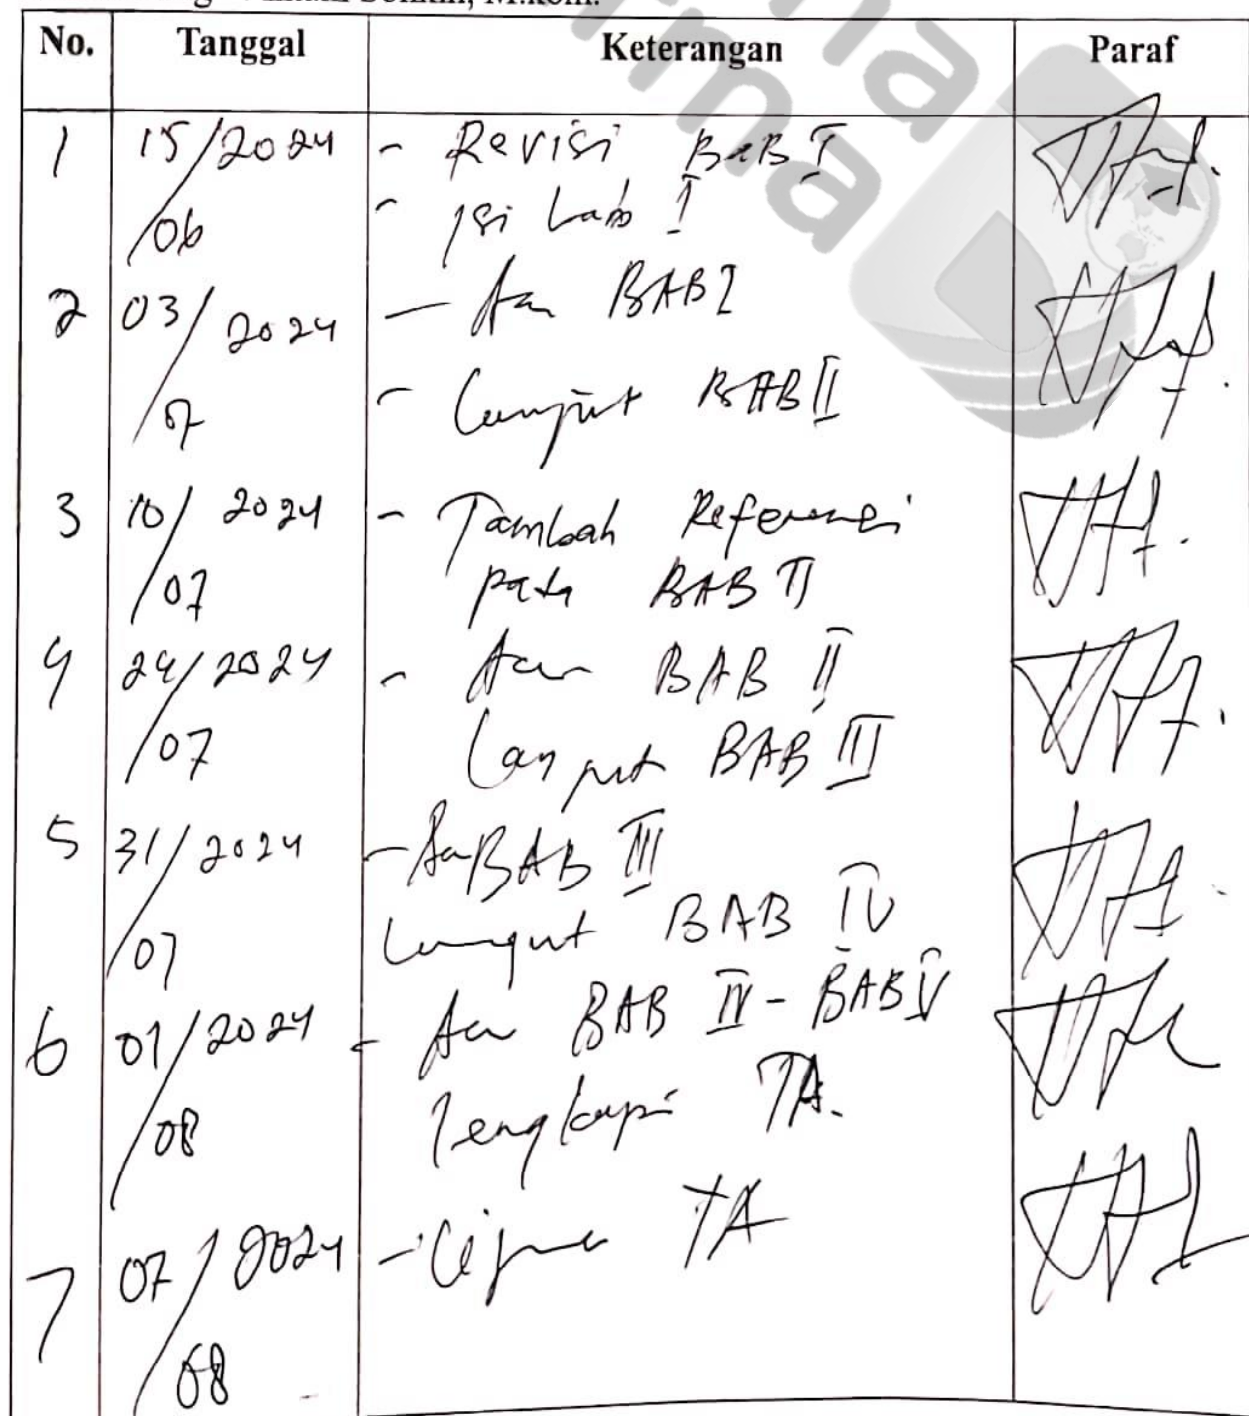 M.kom.
No. Tanggal Keterangan Paraf
1 15/2024 - Revisi BAB I
/06 - Isi bab I
2 03/2024 - Acc BAB I
/07 - Lanjut BAB II
3 10/2024 - Tambah Referensi
/07 pada BAB II
4 24/2024 - Acc BAB II
/07 Lanjut BAB III
5 31/2024 - Acc BAB III
/07 Lanjut BAB IV
6 01/2024 - Acc BAB IV - BAB V
/08 lengkapi TA.
7 07/2024 - TA
/08